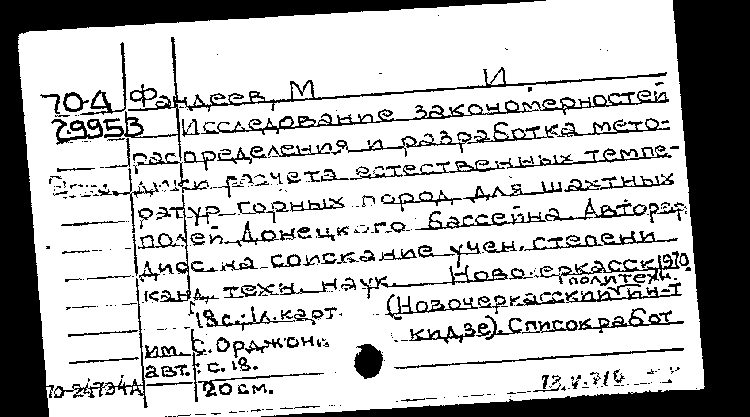 70-Д Фандеев, М И
29953 Исследование закономерностей
распределения и разработка мето-
дики расчета естественных темпе-
ратур горных пород для шахтных
полей Донецкого бассейна. Автореф
дисс. на соискание учен. степени
канд. техн. наук. Новочеркасск 1970
18с.; 1л. карт. (Новочеркасский политехн. ин-т
им. С. Орджоникидзе). Список работ
авт.: с. 18.
70-24724А 20 см.